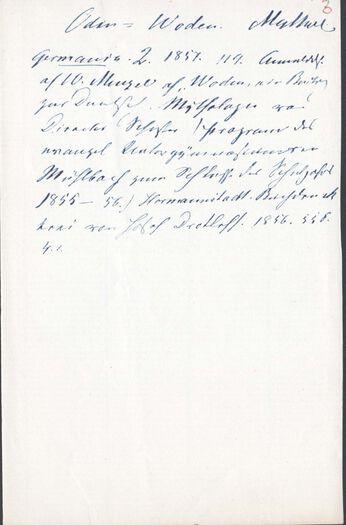 3
Odin = Woden.
Germania. 2. 1857. 119. Anmeldelse
af W. Menzel af, Woden, ein Beitrag
zur Deutsch. Mythologie von
Director Schuster /: Programm des
evangel Untergymnasiums in
Mühlbach zum Schlusse des Schuljahrs
1855 – 56.) Hermannstadt. Buchdruck
kerei von Josef Drotleff. 1856. 55 S.
4.